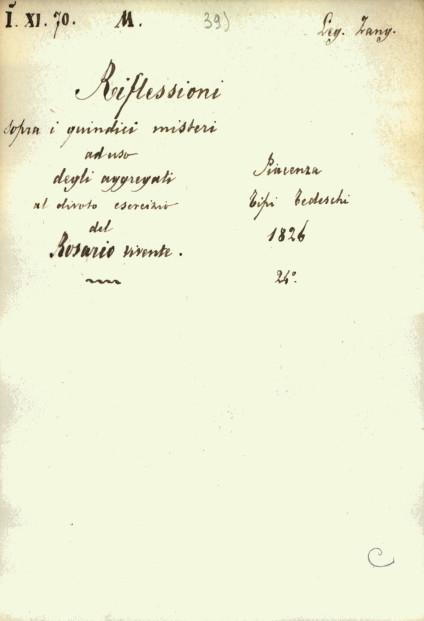 Ī. XI. 70. M. 39) Leg. Zang.
Riflessioni
sopra i quindici misteri
ad uso
degli aggregati
al divoto esercizio
del
Rosario vivente.
Piacenza
Tipi Tedeschi
1826
24°.
C